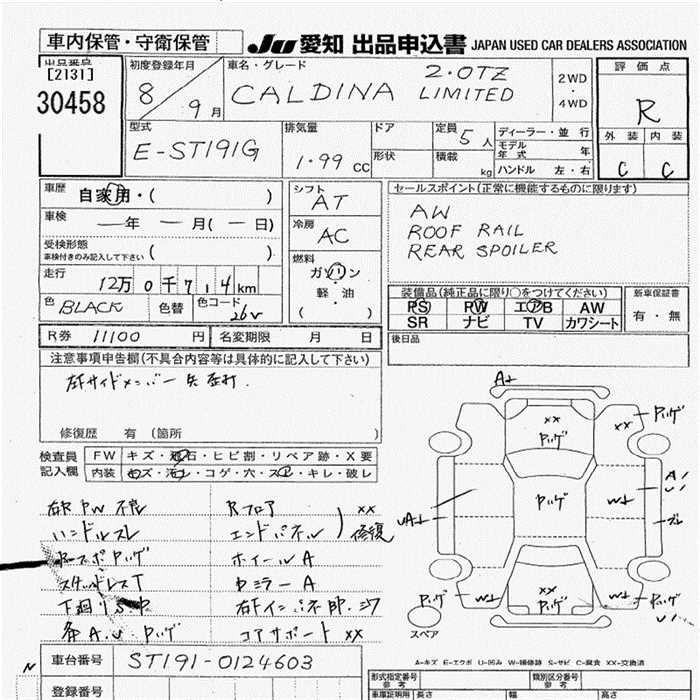 車内保管・守衛保管
Ju 愛知 出品申込書 JAPAN USED CAR DEALERS ASSOCIATION
出品番号
[2131]
30458
初度登録年月
8
9月
車名・グレード
2.0TZ
CALDINA LIMITED
2WD
・
4WD
評価点
R
外装 内装
C C
型式
E-ST191G
排気量
1.99 CC
ドア
形状
定員 5人
積載 kg
ディーラー・並行
モデル年式 年
ハンドル 左・右
車歴
自家用・( )
車検
—年 —月(—日)
受検形態
車検付きのみ記入して下さい ( )
走行
12万0千714km
色
BLACK
色替
色コード
26V
シフト
AT
冷房
AC
燃料
ガソリン
軽・油
( )
セールスポイント(正常に機能するものに限ります)
AW
ROOF RAIL
REAR SPOILER
装備品(純正品に限り○をつけてください)
PS PW エアB AW
SR ナビ TV カワシート
新車保証書
有・無
後日品
R券 11100 円
名変期限 月 日
注意事項申告欄(不具合内容等は具体的に記入して下さい)
修復歴 有 (箇所 )
検査員
記入欄
FW キズ・飛石・ヒビ割・リペア跡・X要
内装 キズ・汚レ・コゲ・穴・スレ・キレ・破レ
右F PW 不良
ハンドルスレ
スタッドレスT
下廻り S中
Rフロア
エンドパネル
XX
修復
ホイールA
ミラーA
コアサポート XX
A↓
XX
XX
W↓
W↓
W↓
XX
スペア
A=キズ E=エクボ U=凹み W=補修跡 S=サビ C=腐食 XX=交換済
車台番号 ST191-0124603
登録番号
形式指定番号
参考
類別区分番号
参考
車庫証明用 長さ 幅 高さ